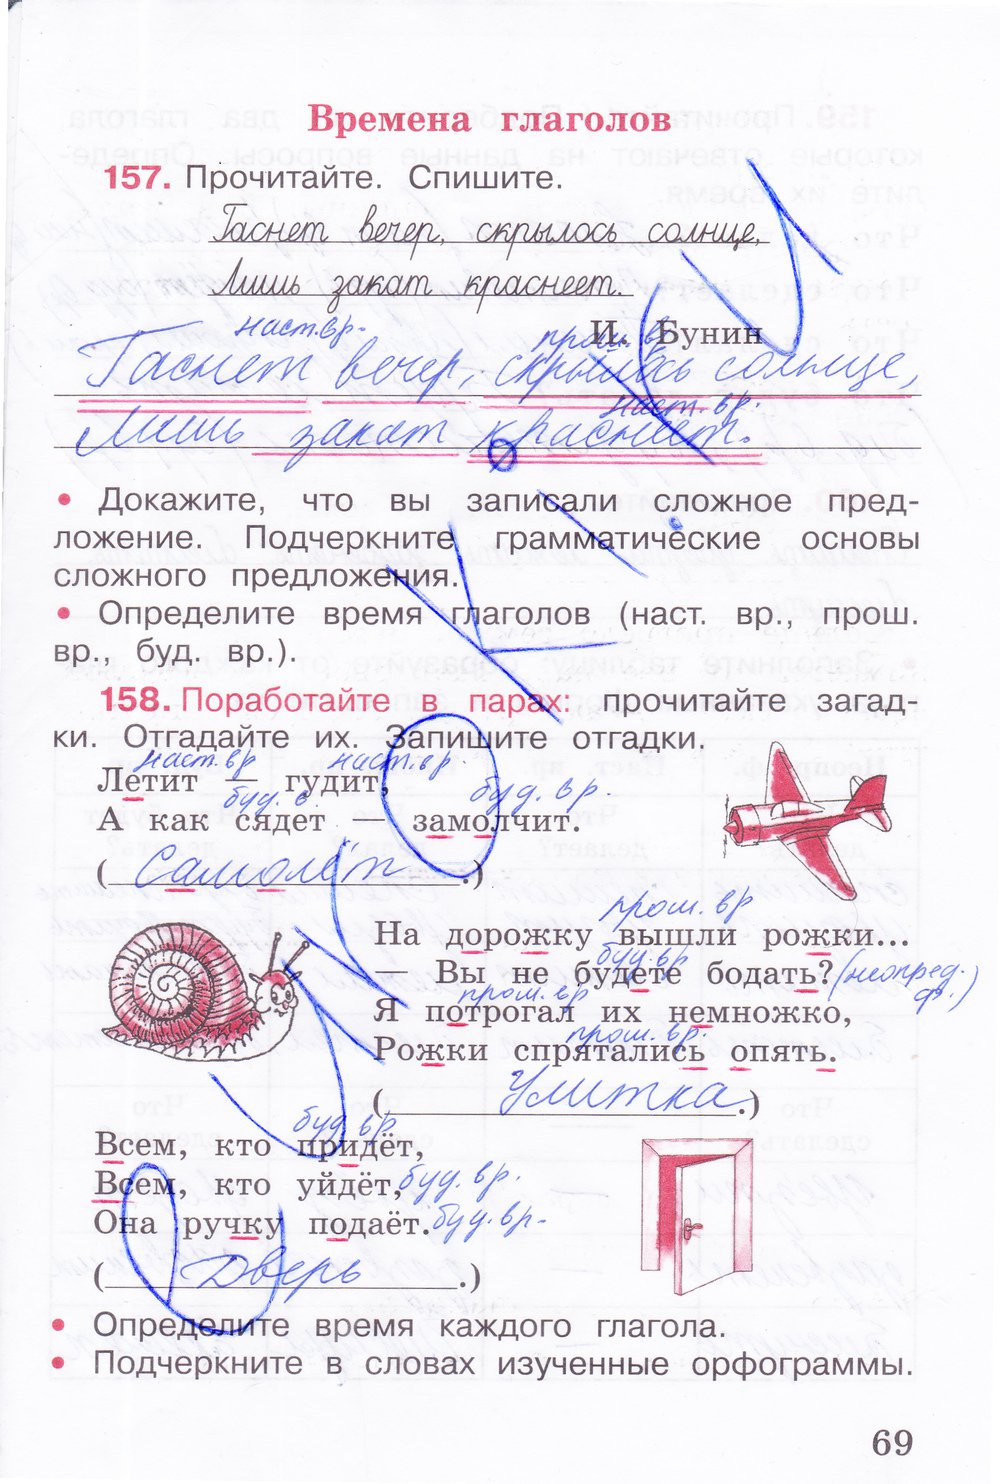 Времена глаголов
157. Прочитайте. Спишите.
Гаснет вечер, скрылось солнце,
Лишь закат краснеет.
И. Бунин
наст.вр. прош. вр.
Гаснет вечер, скрылось солнце,
наст. вр.
Лишь закат краснеет.
• Докажите, что вы записали сложное пред-
ложение. Подчеркните грамматические основы
сложного предложения.
• Определите время глаголов (наст. вр., прош.
вр., буд. вр.).
158. Поработайте в парах: прочитайте загад-
ки. Отгадайте их. Запишите отгадки.
наст.вр наст.вр.
Летит — гудит,
буд. в. буд. вр.
А как сядет — замолчит.
(Самолёт.)
прош. вр
На дорожку вышли рожки...
буд. вр
— Вы не будете бодать? (неопред. ф.)
прош. вр
Я потрогал их немножко,
прош. вр.
Рожки спрятались опять.
(Улитка.)
буд. вр
Всем, кто придёт,
Всем, кто уйдёт, буд. вр.
Она ручку подаёт. буд. вр.
(Дверь.)
• Определите время каждого глагола.
• Подчеркните в словах изученные орфограммы.
69